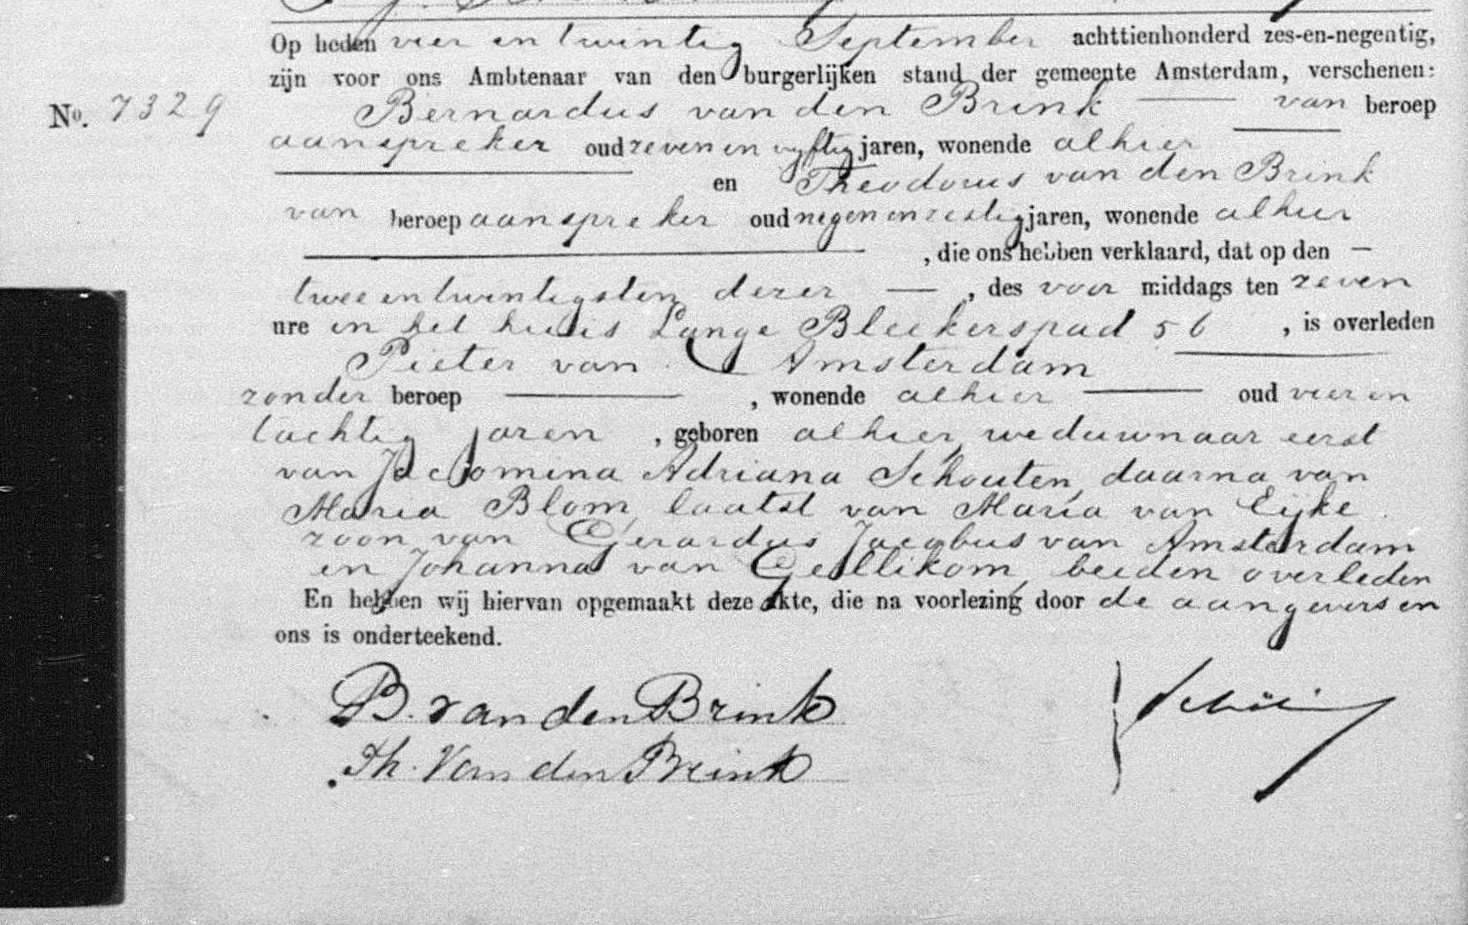 Op heden vier en twintig September achttienhonderd zes-en-negentig,
zijn voor ons Ambtenaar van den burgerlijken stand der gemeente Amsterdam, verschenen:
No. 7329 Bernardus van den Brink van beroep
aanspreker oud zeven en vyftig jaren, wonende alhier
en Theodorus van den Brink
van beroep aanspreker oud negen en zestig jaren, wonende alhier
, die ons hebben verklaard, dat op den
twee en twintigsten dezer , des voor middags ten zeven
ure in het huis Lange Bleekerspad 56 , is overleden
Pieter van Amsterdam
zonder beroep , wonende alhier oud vier en
tachtig jaren , geboren alhier, weduwnaar eerst
van Jacomina Adriana Schouten, daarna van
Maria Blom, laatst van Maria van Eijke
zoon van Gerardus Jacobus van Amsterdam
en Johanna van Gellikom, beiden overleden
En hebben wij hiervan opgemaakt deze akte, die na voorlezing door de aangevers en
ons is onderteekend.
B. van den Brink
Th. Van den Brink